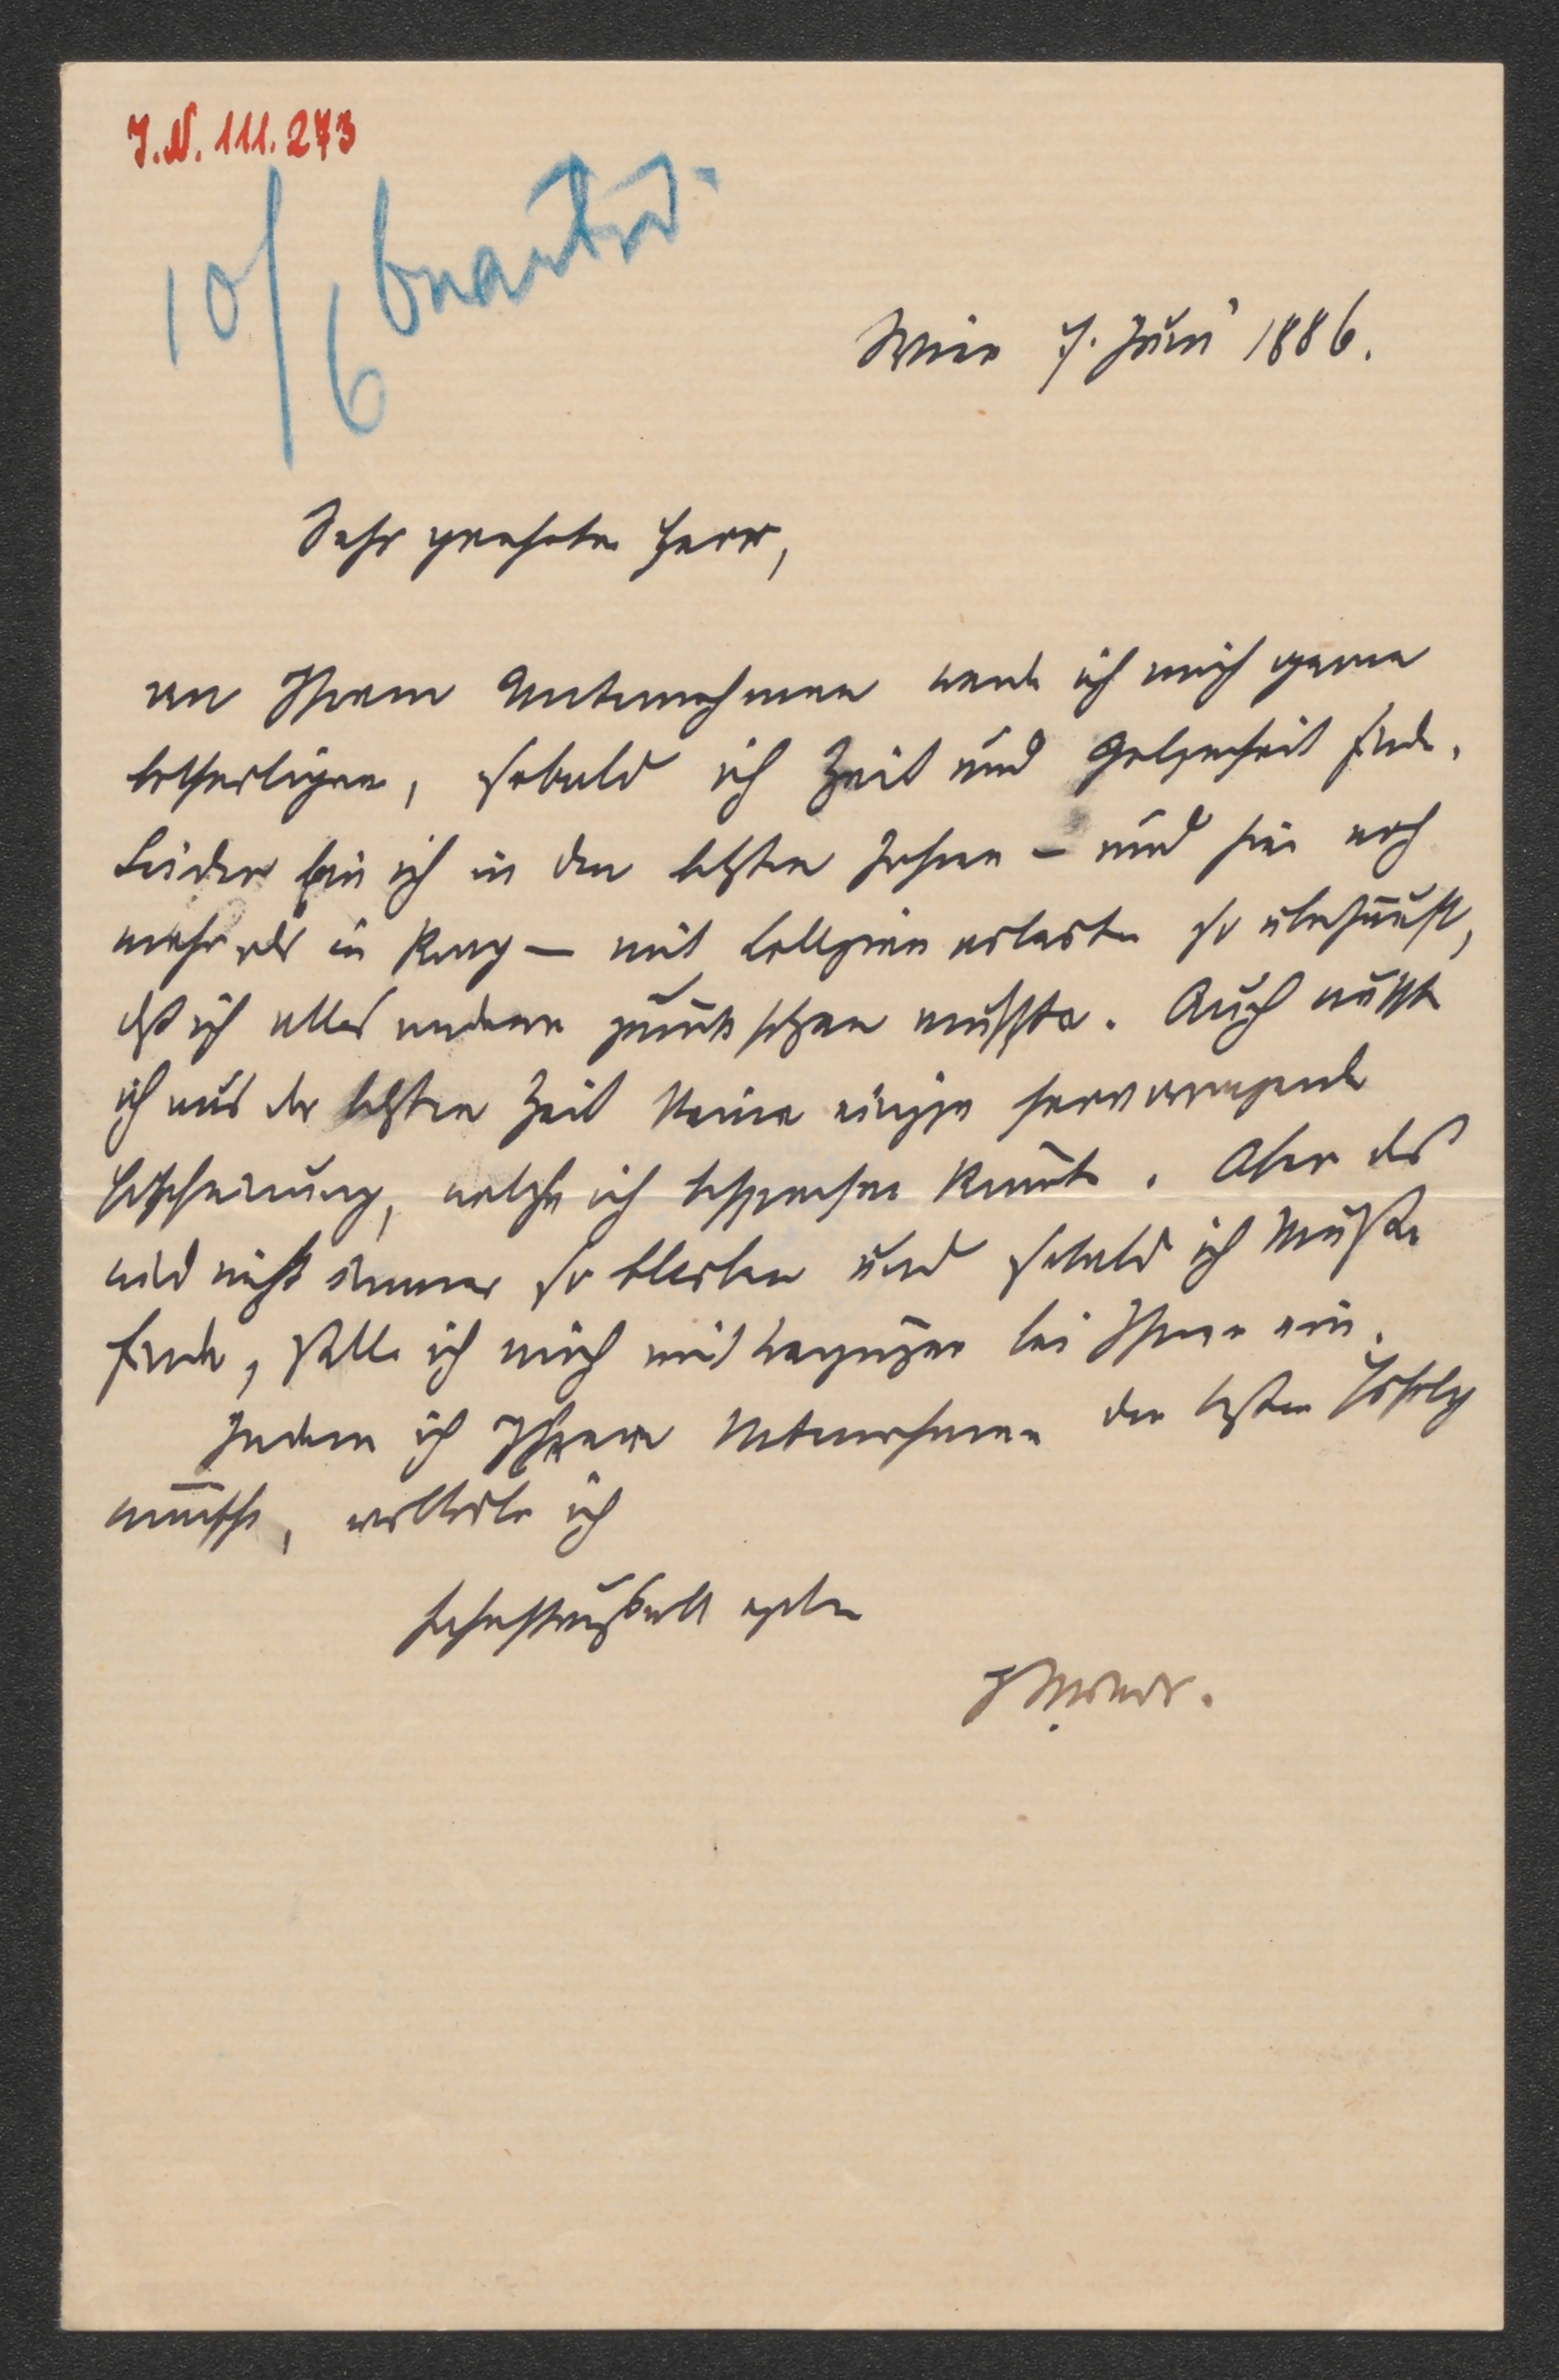 J.N. 111.273
10/6 beantw.
Wien 7. Juni 1886.
Sehr geehrter Herr,
an Ihrem Unternehmen werde ich mich gerne
betheiligen, sobald ich Zeit und Gelegenheit finde.
Leider bin ich in den letzten Jahren – und hier noch
mehr als in Prag – mit Collegien arbeiten so überhäuft,
daß ich alles andere zurück setzen mußte. Auch wüßte
ich aus der letzten Zeit keine einzige hervorragende
Erscheinung, welche ich besprechen könnte. Aber das
wird nicht immer so bleiben und sobald ich Muße
finde, stelle ich mich mit Vergnügen bei Ihnen ein.
Indem ich Ihrem Unternehmen den besten Erfolg
wünsche, verbleibe ich
hochachtungsvoll ergeben